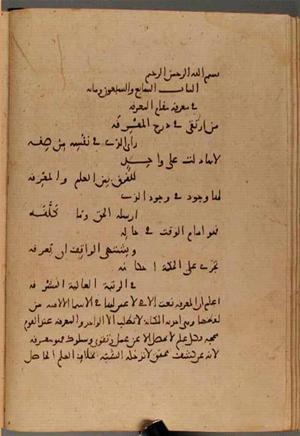 بسم الله الرحمن الرحيم
الباب السابع والسبعون ومائة
في معرفة مقام المعرفة
من ارتقى في درج المعرفه
رأى الذي في نفسه من صفه
لانها دلت على واحد
للفرق بين العلم والمعرفه
لها وجود في وجود الذي
ارسله الحق وما كلفه
فهو امام الوقت في حاله
ويشتهى الواقف ان يعرفه
تجرى على الحكمة احكامه
في الرتبة العالية المشرفه
اعلم ان المعرفة نعت الاهى لا عين لها في الاسما الالاهية من
لفظها وهي احدية المكانة لا تطلب الا الواحد والمعرفة عند القوم
محجة وكل علم لا يحصل الا عن عمل وتقوى وسلوك فهو معرفة
لانه عن كشف محقق لا تدخله الشبه بخلاف العلم الحاصل